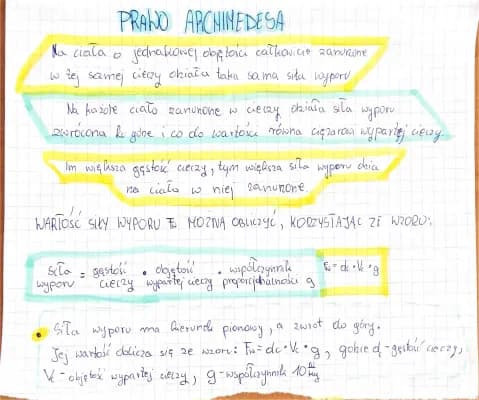 PRAWO ARCHIMEDESA
Na ciała o jednakowej objętości całkowicie zanurzone
w tej samej cieczy działa taka sama siła wyporu.
Na każde ciało zanurzone w cieczy działa siła wyporu
zwrócona ku górze i co do wartości równa ciężarowi wypartej cieczy.
Im większa gęstość cieczy, tym większa siła wyporu działa
na ciało w niej zanurzone.
WARTOŚĆ SIŁY WYPORU Fw MOŻNA OBLICZYĆ, KORZYSTAJĄC ZE WZORU:
siła = gęstość • objętość • współczynnik Fw = dc • Vc • g
wyporu cieczy wypartej cieczy proporcjonalności g
• Siła wyporu ma kierunek pionowy, a zwrot do góry.
Jej wartość oblicza się ze wzoru: Fw = dc • Vc • g, gdzie d - gęstość cieczy,
Vc - objętość wypartej cieczy, g - współczynnik 10 N/kg